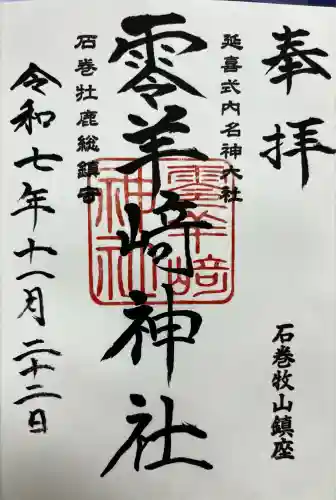 奉拝
石巻牧山鎮座
延喜式内名神大社
零羊﨑神社
零羊﨑
神社
石巻牡鹿総鎮守
令和七年十一月二十二日